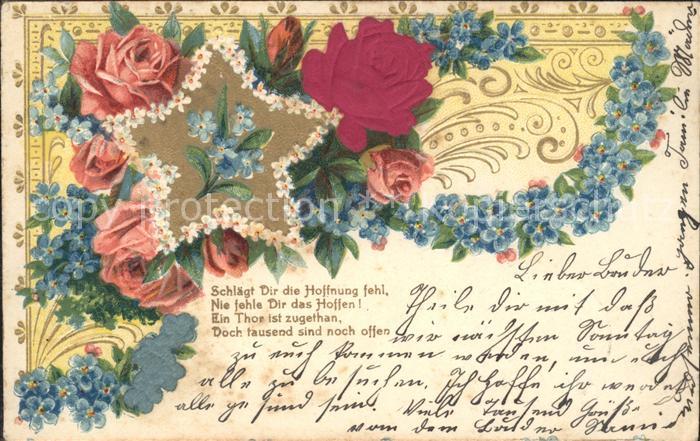 Schlägt Dir die Hoffnung fehl,
Nie fehle Dir das Hoffen!
Ein Thor ist zugethan,
Doch tausend sind noch offen
Lieber Bruder
Theile dir mit daß
wir nächsten Sonntag
zu euch kommen werden, um euch
alle zu besuchen. Ich hoffe ihr werdet
alle gesund sein. Viele Tausend Grüße
von dem Bruder
copy-protection